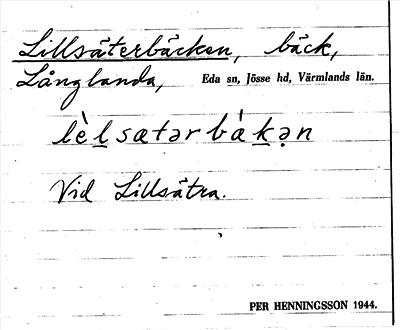 Lillsäterbäcken, bäck,
Långlanda, Eda sn, Jösse hd, Värmlands län.
lèlsætərbákən
Vid Lillsätra.
PER HENNINGSSON 1944.